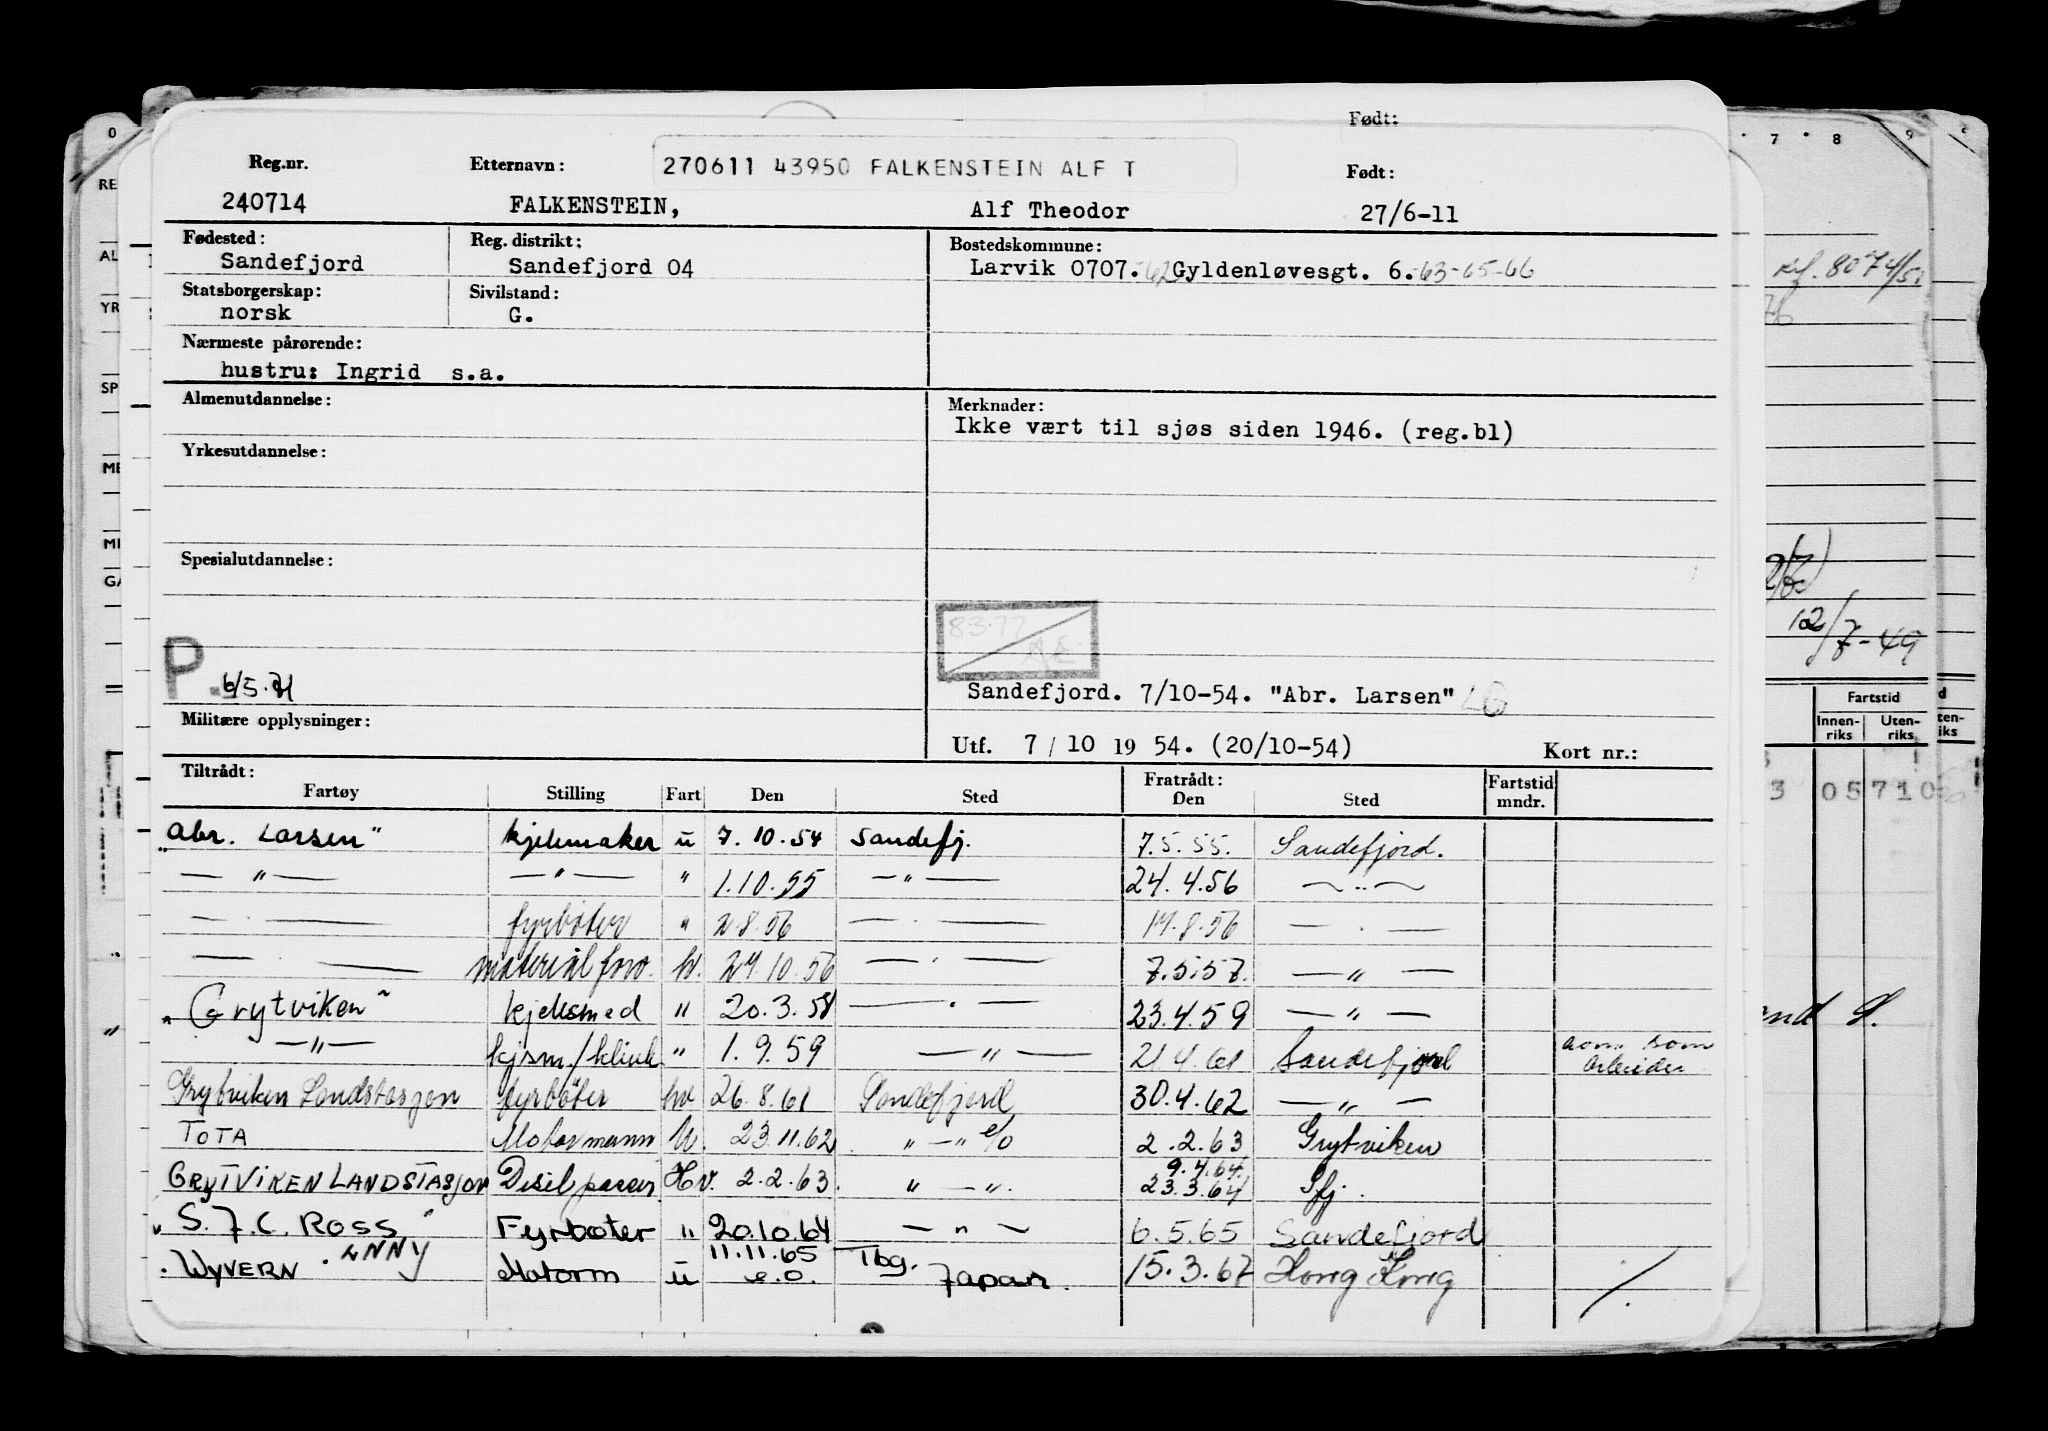 Født:
Reg.nr. Etternavn: 270611 43950 FALKENSTEIN ALF T Født:
240714 FALKENSTEIN, Alf Theodor 27/6-11
Fødested: Reg. distrikt: Bostedskommune:
Sandefjord Sandefjord 04 Larvik 0707.-62 Gyldenløvesgt. 6.-63-65-66
Statsborgerskap: Sivilstand:
norsk G.
Nærmeste pårørende:
hustru: Ingrid s.a.
Almenutdannelse: Merknader:
Ikke vært til sjøs siden 1946. (reg.bl)
Yrkesutdannelse:
Spesialutdannelse:
83-77
P. 6/5.71
Sandefjord. 7/10-54. "Abr. Larsen" LG
Militære opplysninger:
Utf. 7/10 19 54. (20/10-54) Kort nr.:
Tiltrådt: Fratrådt:
Fartøy Stilling Fart Den Sted Den Sted Fartstid mndr.
"Abr. Larsen" kjelemaker u 7.10.54 Sandefj. 7.5.55. Sandefjord.
— " — — " — " 1.10.55 — " — 24.4.56 — " —
— " — fyrbøter " 2.8.56 — " — 17.8.56 — " —
— " — material forv. hv. 24.10.56 — " — 7.5.57. — " —
"Grytviken" kjelesmed " 20.3.58 — " — 23.4.59 — " —
— " — kjsm./klink " 1.9.59 — " — 21.4.61 Sandefjord som arbeider
Grytviken Landstasjon fyrbøter hv 26.8.61 Sandefjord 30.4.62 — " —
TOTA Motormann U. 23.11.62 " — " e/o 2.2.63 Grytviken
9.4.64.
GRYTVIKEN LANDSTASJON Diselpasser Hv. 2.2.63. " — ". 23.3.64 Sfj.
"S. J. C. ROSS" Fyrbøter " 20.10.64 — " — 6.5.65 Sandefjord
. WYVERN . ANNY Motorm u 11.11.65 e.o. Tbg. Japan. 15.3.67 Hong Kong /.
0 7 8 9
RE
AL
YR
SP
ME
MI
GA
12/7-49
Fartstid
Innen-riks Uten-riks
3 05710